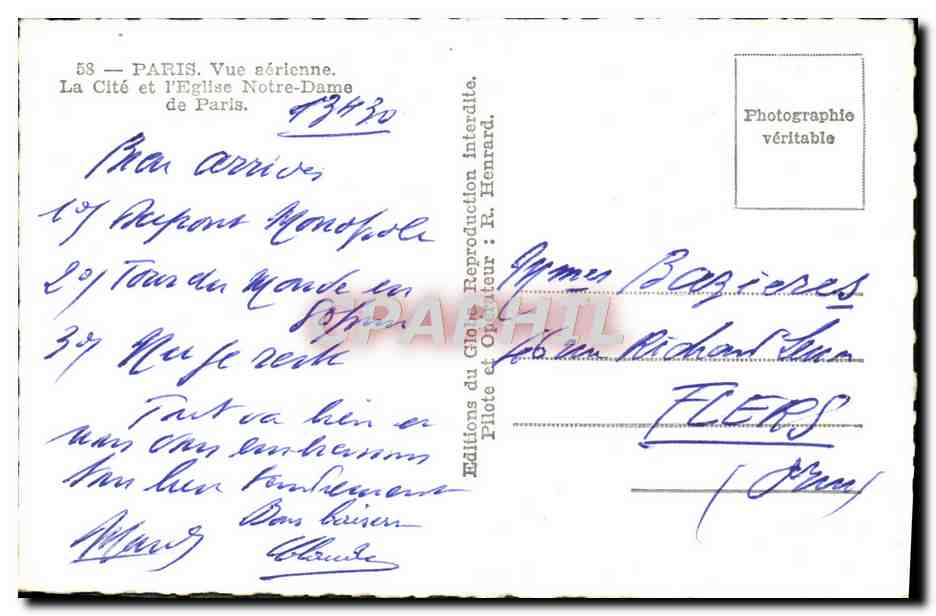 58 — PARIS. Vue aérienne.
La Cité et l'Eglise Notre-Dame
de Paris.
13H30
Bien arrivés
1°/ Dupont Monopole
2°/ Tour du Monde en
3°/ Ici je reste
Tout va bien et
nous vous embrassons
tous bien tendrement
Bons baisers
Claude
Editions du Globe Reproduction interdite.
Pilote et Opérateur : R. Henrard.
Photographie
véritable
CPAPHIL
Bazières
Richard
FLERS
(Orne)